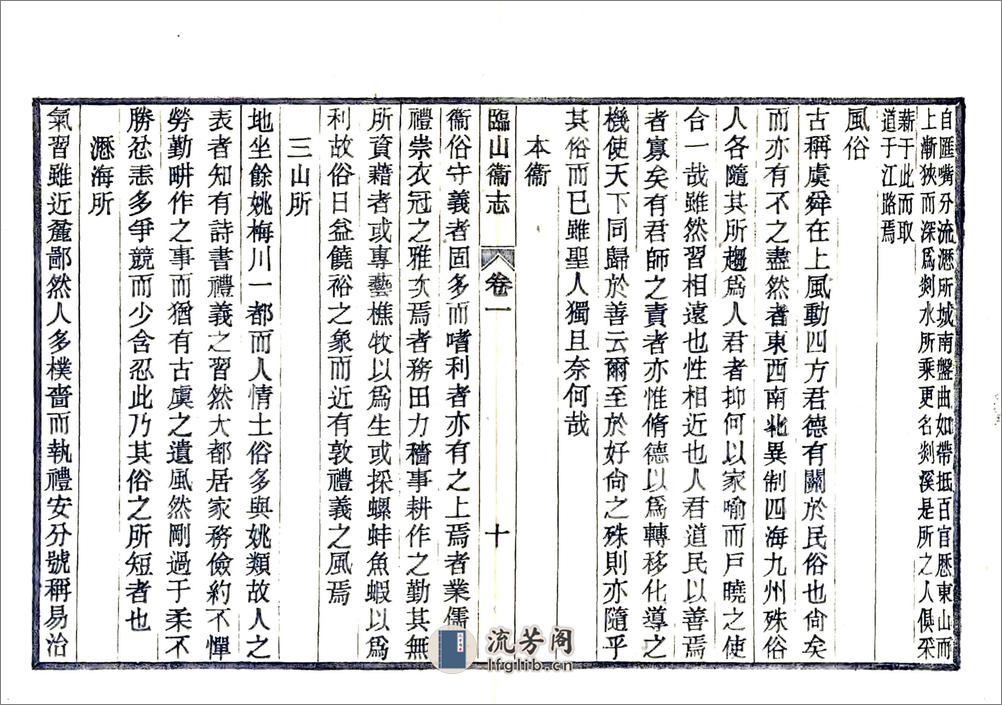 自匯嘴分流瀝所城南盤曲如帶抵百官歷東山而
上漸狹而深爲剡水所乘更名剡溪是所之人俱采
薪于此而取
道于江路焉
風俗
古稱虞舜在上風動四方君德有關於民俗也尙矣
而亦有不之盡然者東西南北異制四海九州殊俗
人各隨其所趨爲人君者抑何以家喻而戶曉之使
合一哉雖然習相遠也性相近也人君道民以善焉
者寡矣有君師之責者亦惟脩德以爲轉移化導之
機使天下同歸於善云爾至於好尙之殊則亦隨乎
其俗而已雖聖人獨且奈何哉
本衞
臨山衞志
卷一
十
衞俗守義者固多而嗜利者亦有之上焉者業儒
禮崇衣冠之雅次焉者務田力穡事耕作之勤其無
所資藉者或專藝樵牧以爲生或採螺蚌魚蝦以爲
利故俗日益饒裕之象而近有敦禮義之風焉
三山所
地坐餘姚梅川一都而人情土俗多與姚類故人之
表者知有詩書禮義之習然大都居家務儉約不憚
勞勤畊作之事而猶有古虞之遺風然剛過于柔不
勝忿恚多爭競而少含忍此乃其俗之所短者也
瀝海所
氣習雖近麄鄙然人多樸嗇而執禮安分號稱易治
流芳阁
lfglib.cn